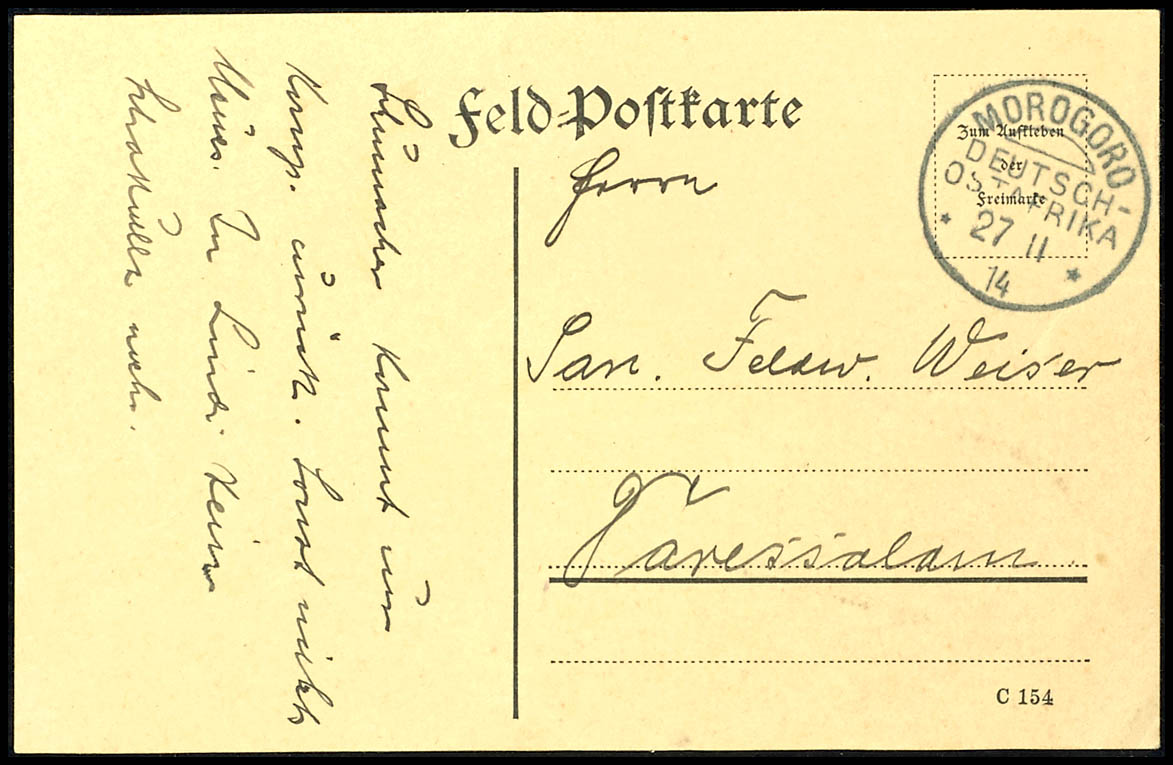 Feld-Postkarte
Zum Aufkleben
der
Freimarke
MOROGORO
DEUTSCH-
OSTAFRIKA
27 11
14
Herrn
San. Feldw. Weiser
Daressalam
C 154
kommt zur
Komp. zurück. Sonst nichts
Neues. In Lindi keine
noch.